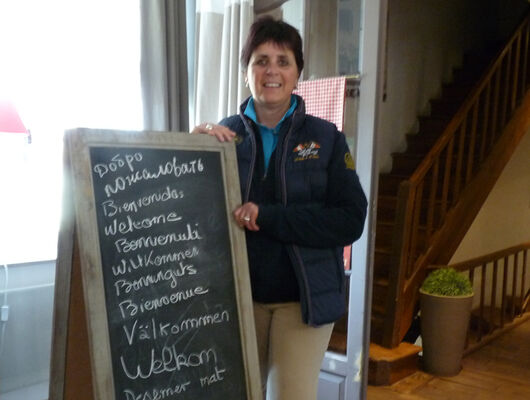 Добро
пожаловать
Bienvenidas
Welcome
Benvenuti
Willkommen
Bienvenguts
Bienvenue
Välkommen
Welkom
Desemer mat